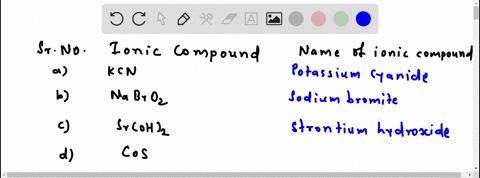 Sr. No. Ionic Compound Name of ionic compound
a) KCN Potassium Cyanide
b) NaBrO2 Sodium bromite
c) Sr(OH)2 Strontium hydroxide
d) CoS